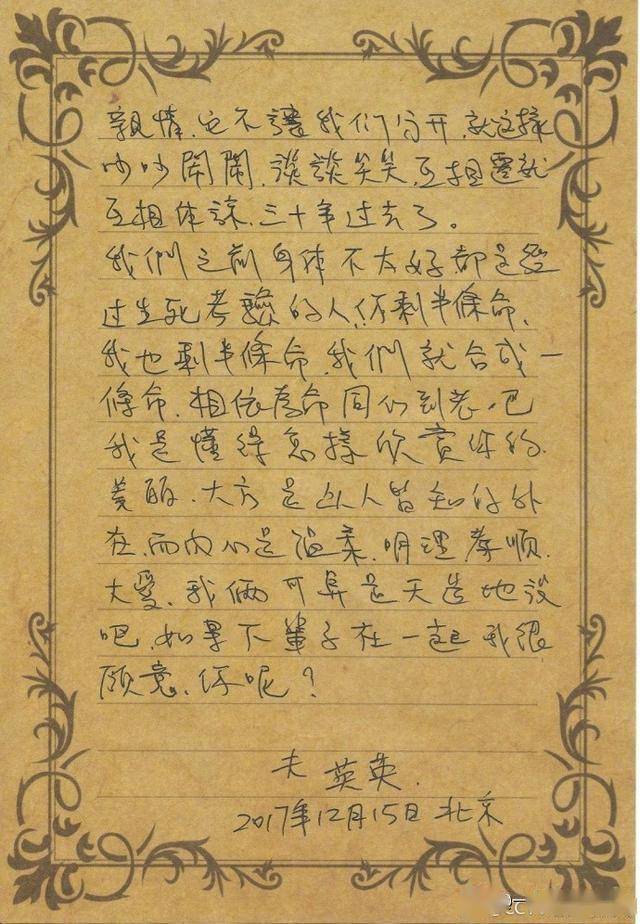 親情,它不讓我们分开,就这樣
吵吵鬧鬧,談談笑笑,互相遷就
互相体諒,三十年过去了。
我們之前身体不太好都是经
过生死考驗的人,你剩半條命,
我也剩半條命,我們就合成一
條命,相依為命同们到老,吧
我是懂得怎樣欣賞你的,
美丽、大方是众人皆知的外
在,而内心是温柔,明理孝順,
大愛,我俩可算是天造地设
吧,如果下輩子在一起我很
願意,你呢?
夫 英英.
2017年12月15日 北京